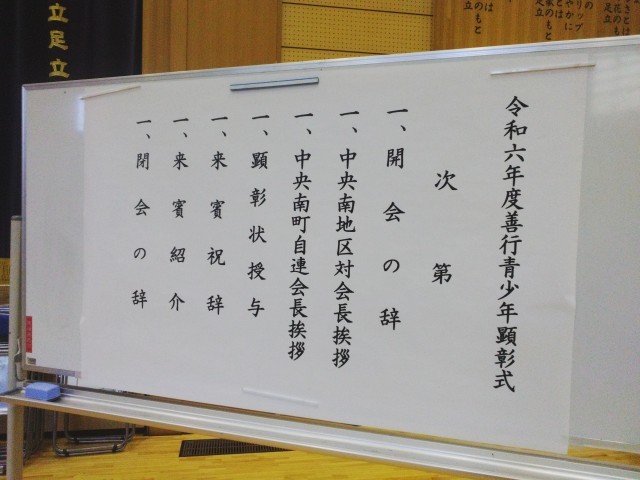 令和六年度善行青少年顕彰式
次第
一、開会の辞
一、中央南地区対会長挨拶
一、中央南町自連会長挨拶
一、顕彰状授与
一、来賓祝辞
一、来賓紹介
一、閉会の辞
立足立